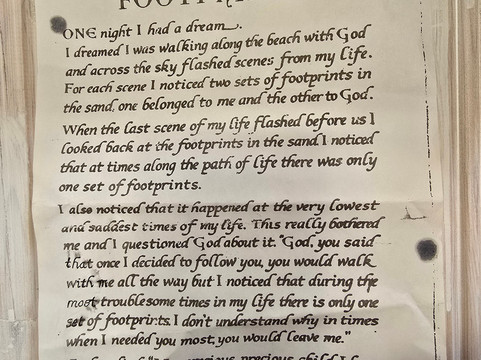 FOOTPRINTS
ONE night I had a dream.
I dreamed I was walking along the beach with God
and across the sky flashed scenes from my life.
For each scene I noticed two sets of footprints in
the sand, one belonged to me and the other to God.
When the last scene of my life flashed before us I
looked back at the footprints in the sand. I noticed
that at times along the path of life there was only
one set of footprints.
I also noticed that it happened at the very lowest
and saddest times of my life. This really bothered
me and I questioned God about it. "God, you said
that once I decided to follow you, you would walk
with me all the way but I noticed that during the
most troublesome times in my life there is only one
set of footprints. I don't understand why in times
when I needed you most, you would leave me."
precious child I